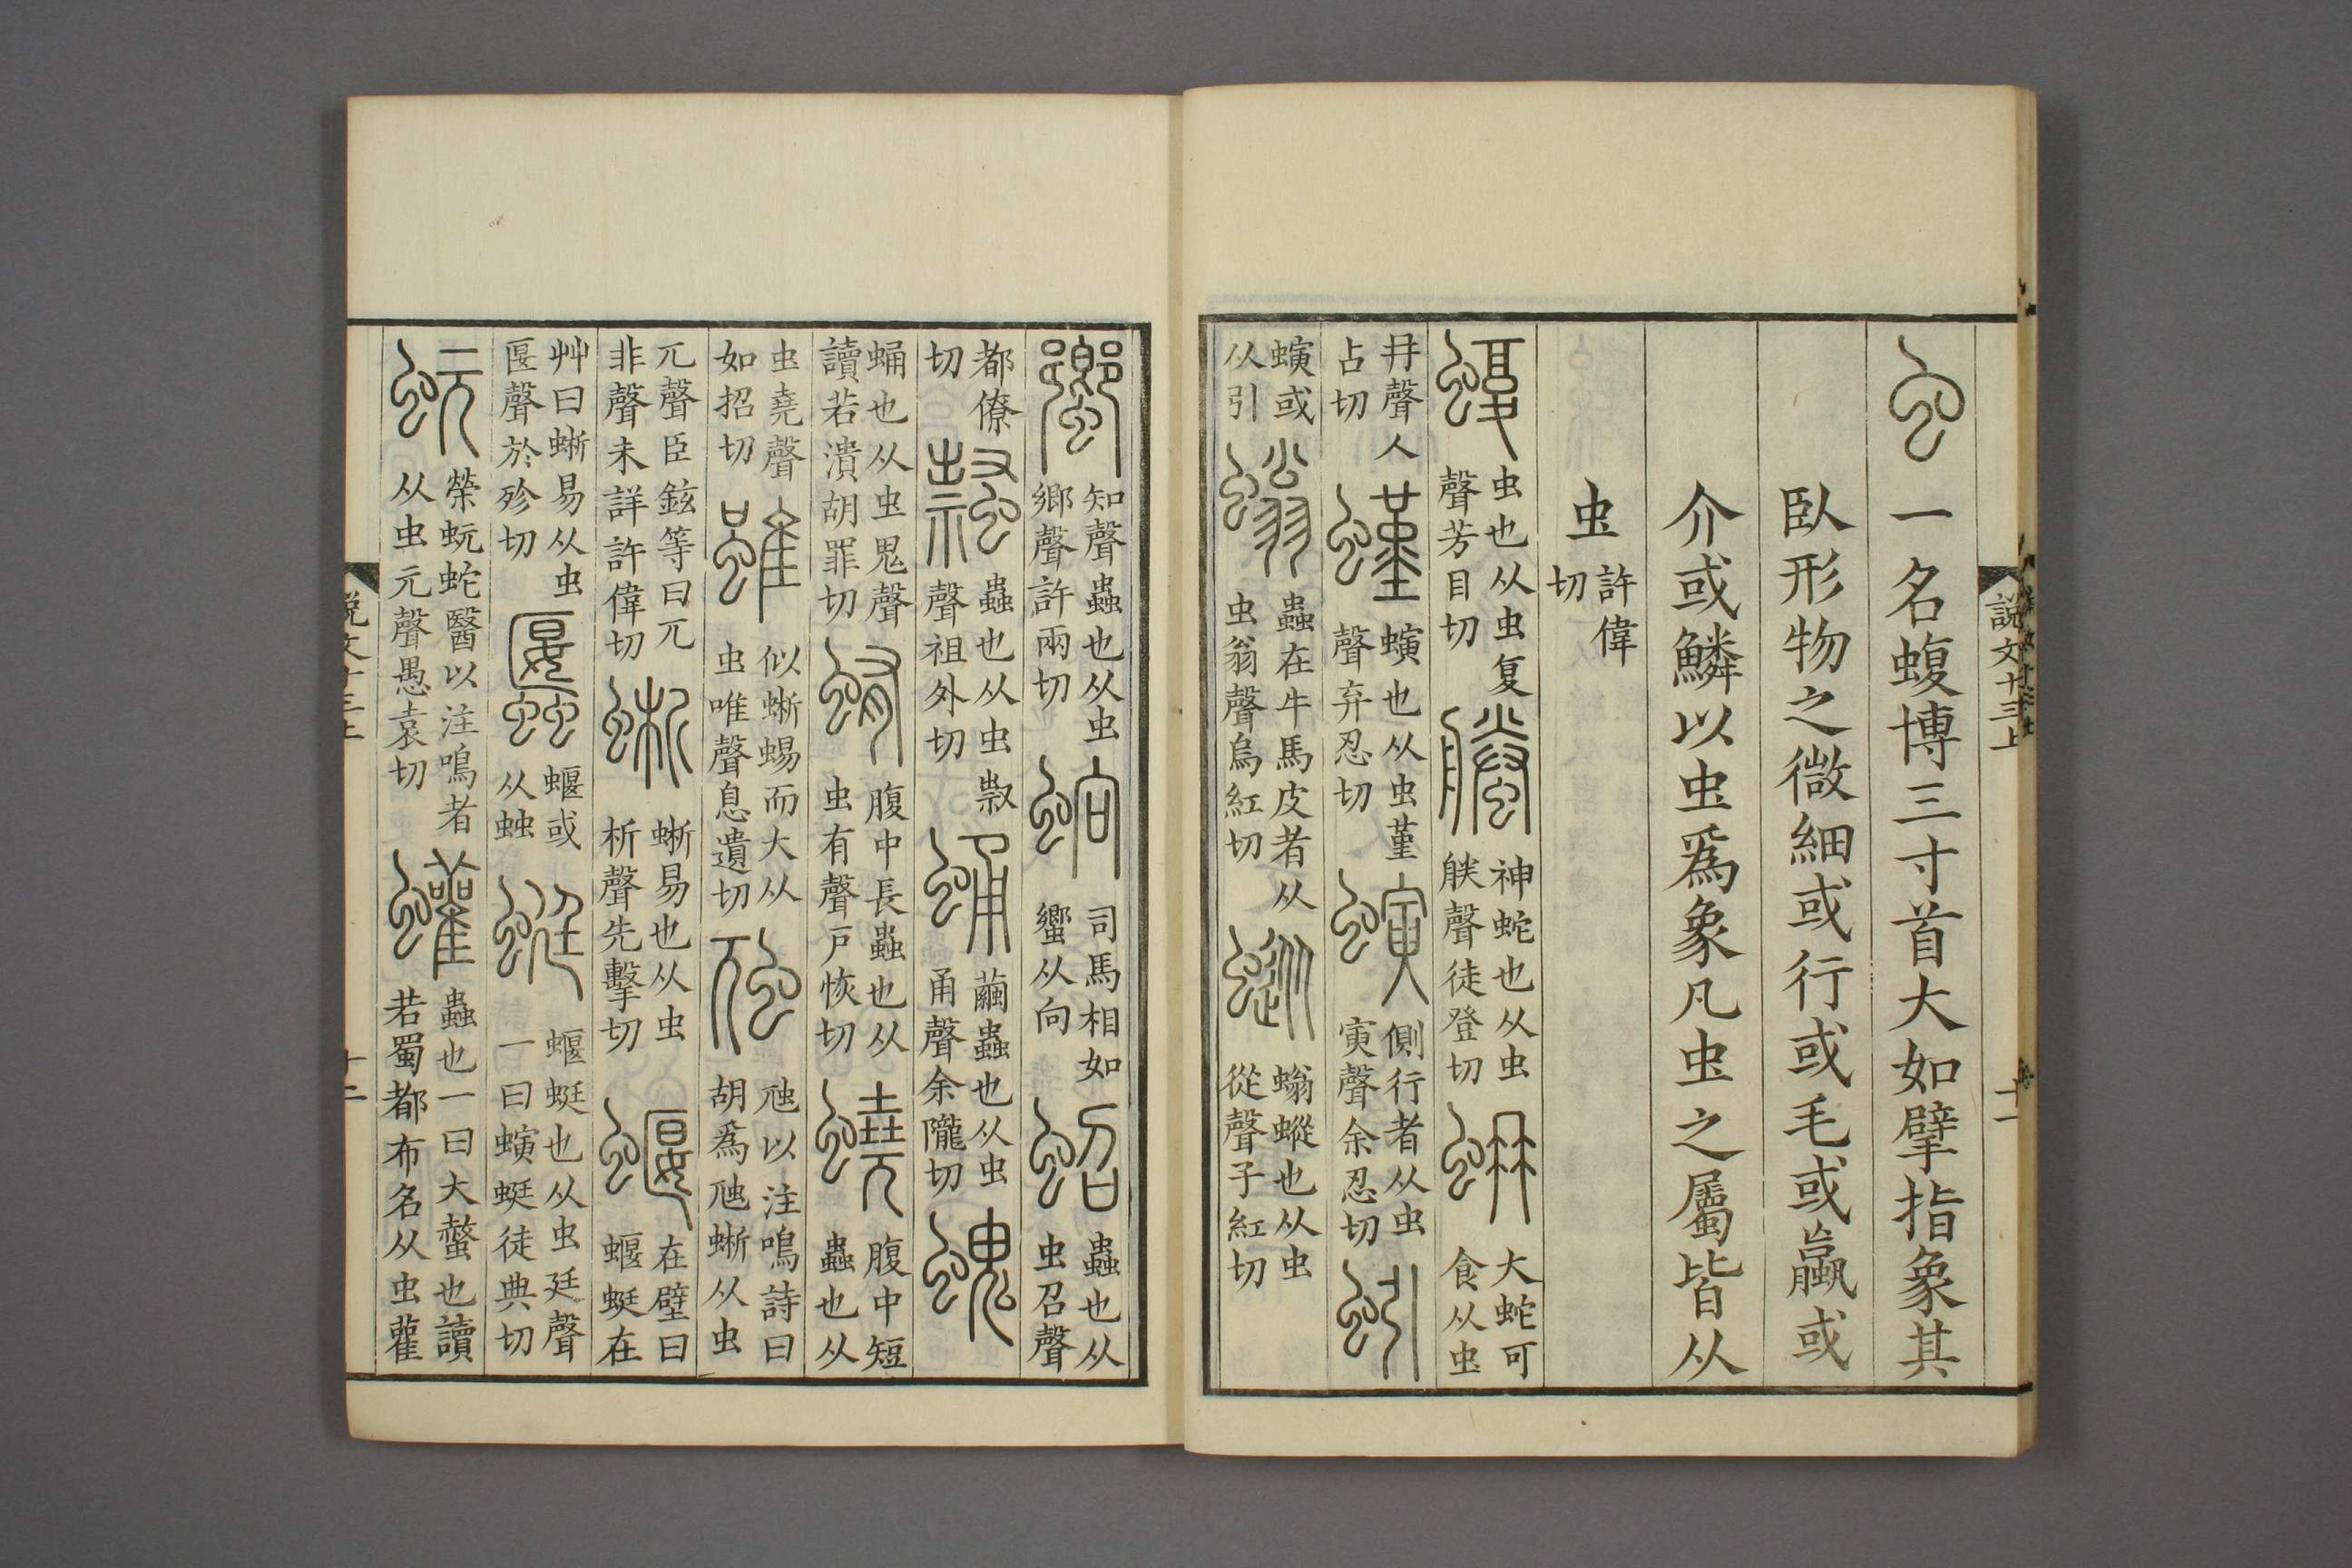 說文十三上 十一
虫 一名蝮博三寸首大如擘指象其
臥形物之微細或行或毛或蠃或
介或鱗以虫爲象凡虫之屬皆从
虫 許偉切
蝮 虫也从虫复聲芳目切 螣 神蛇也从虫朕聲徒登切 蚦 大蛇可食从虫
冄聲人占切 螼 螾也从虫堇聲弃忍切 螾 側行者从虫寅聲余忍切 蚓
螾或从引 螉 蟲在牛馬皮者从虫翁聲烏紅切 䗥 螉䗥也从虫從聲子紅切
蠁 知聲蟲也从虫鄉聲許兩切 蚼 司馬相如蠁从向 蛁 蟲也从虫召聲
都僚切 蟲也从虫 聲祖外切 蛹 繭蟲也从虫甬聲余隴切 螝
蛹也从虫鬼聲讀若潰胡罪切 蛕 腹中長蟲也从虫有聲戶恢切 蟯 腹中短蟲也从
虫堯聲如招切 雖 似蜥蜴而大从虫唯聲息遺切 虺 虺以注鳴詩曰胡爲虺蜥从虫
兀聲臣鉉等曰兀非聲未詳許偉切 蜥 蜥易也从虫析聲先擊切 蝘 在壁曰蝘蜓在
艸曰蜥易从虫匽聲於殄切 蝘或从䖵 蜓 蝘蜓也从虫廷聲一曰螾蜓徒典切
蚖 榮蚖蛇醫以注鳴者从虫元聲愚袁切 蠸 蟲也一曰大螫也讀若蜀都布名从虫雚
說文十三上 十二